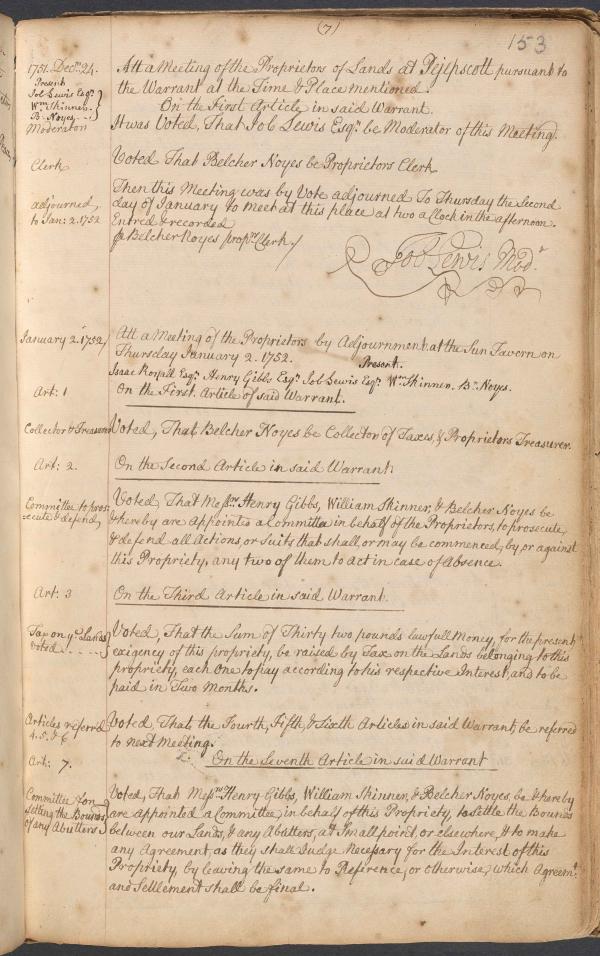 (7)
153
1751. Decr. 24.
Present
Job Lewis Esqr.
Wm. Skinner.
B. Noyes.
Moderator
Att a Meeting of the Proprietors of Lands at Pejepscott pursuant to
the Warrant at the Time & Place mentioned.
On the First Article in said Warrant.
It was Voted, That Job Lewis Esqr. be Moderator of this Meeting.
Clerk
Voted That Belcher Noyes be Proprietors Clerk
adjourned
to Jan: 2. 1752
Then this Meeting was by Vote adjourned To Thursday the Second
day of January to meet at this place at two a Clock in the afternoon.
Entred & recorded
Belcher Noyes proprs. Clerk
Job Lewis Modr.
January 2. 1752
Att a Meeting of the Proprietors by Adjournment at the Sun Tavern on
Thursday January 2. 1752.
Present.
Isaac Royall Esqr. Henry Gibbs Esqr. Job Lewis Esqr. Wm. Skinner. Br. Noyes.
Art: 1
On the First Article of said Warrant.
Collector & Treasurer
Voted, That Belcher Noyes be Collector of Taxes, & Proprietors Treasurer.
Art: 2.
On the Second Article in said Warrant.
Committee to pros-
-ecute & defend
Voted, That Messrs. Henry Gibbs, William Skinner, & Belcher Noyes be
& hereby are appointed a Committee in behalf of the Proprietors, to prosecute
& defend all Actions or Suits that shall, or may be commenced, by or against
this Propriety, any two of them to act in case of Absence.
Art: 3
On the Third Article in said Warrant.
Tax on ye. Lands
Voted
Voted, That the Sum of Thirty two pounds lawfull Money, for the present
exigency of this propriety, be raised by Tax on the Lands belonging to this
propriety, each One to pay according to his respective Interest, and to be
paid in Two Months.
Articles referrd
4. 5. & 6
Voted That the Fourth, Fifth, & Sixth Articles in said Warrant, be referred
to next Meeting.
Art: 7.
On the Seventh Article in said Warrant
Committee for
setling the Bounds
of any Abutters
Voted, That Messrs. Henry Gibbs, William Skinner, & Belcher Noyes, be & hereby
are appointed a Committee, in behalf of this Propriety, to settle the Bounds
between our Lands, & any Abutters, at Small point, or elsewhere, & to make
any Agreement, as they shall Judge Necessary for the Interest of this
Propriety, by leaving the same to Reference, or otherwise, which Agreemt.
and Settlement shall be final.